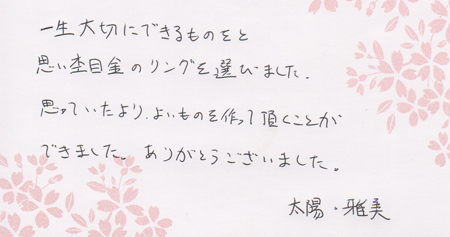 一生大切にできるものをと
思い杢目金のリングを選びました.
思っていたより、よいものを作って頂くことが
できました。ありがとうございました。
太陽・雅美